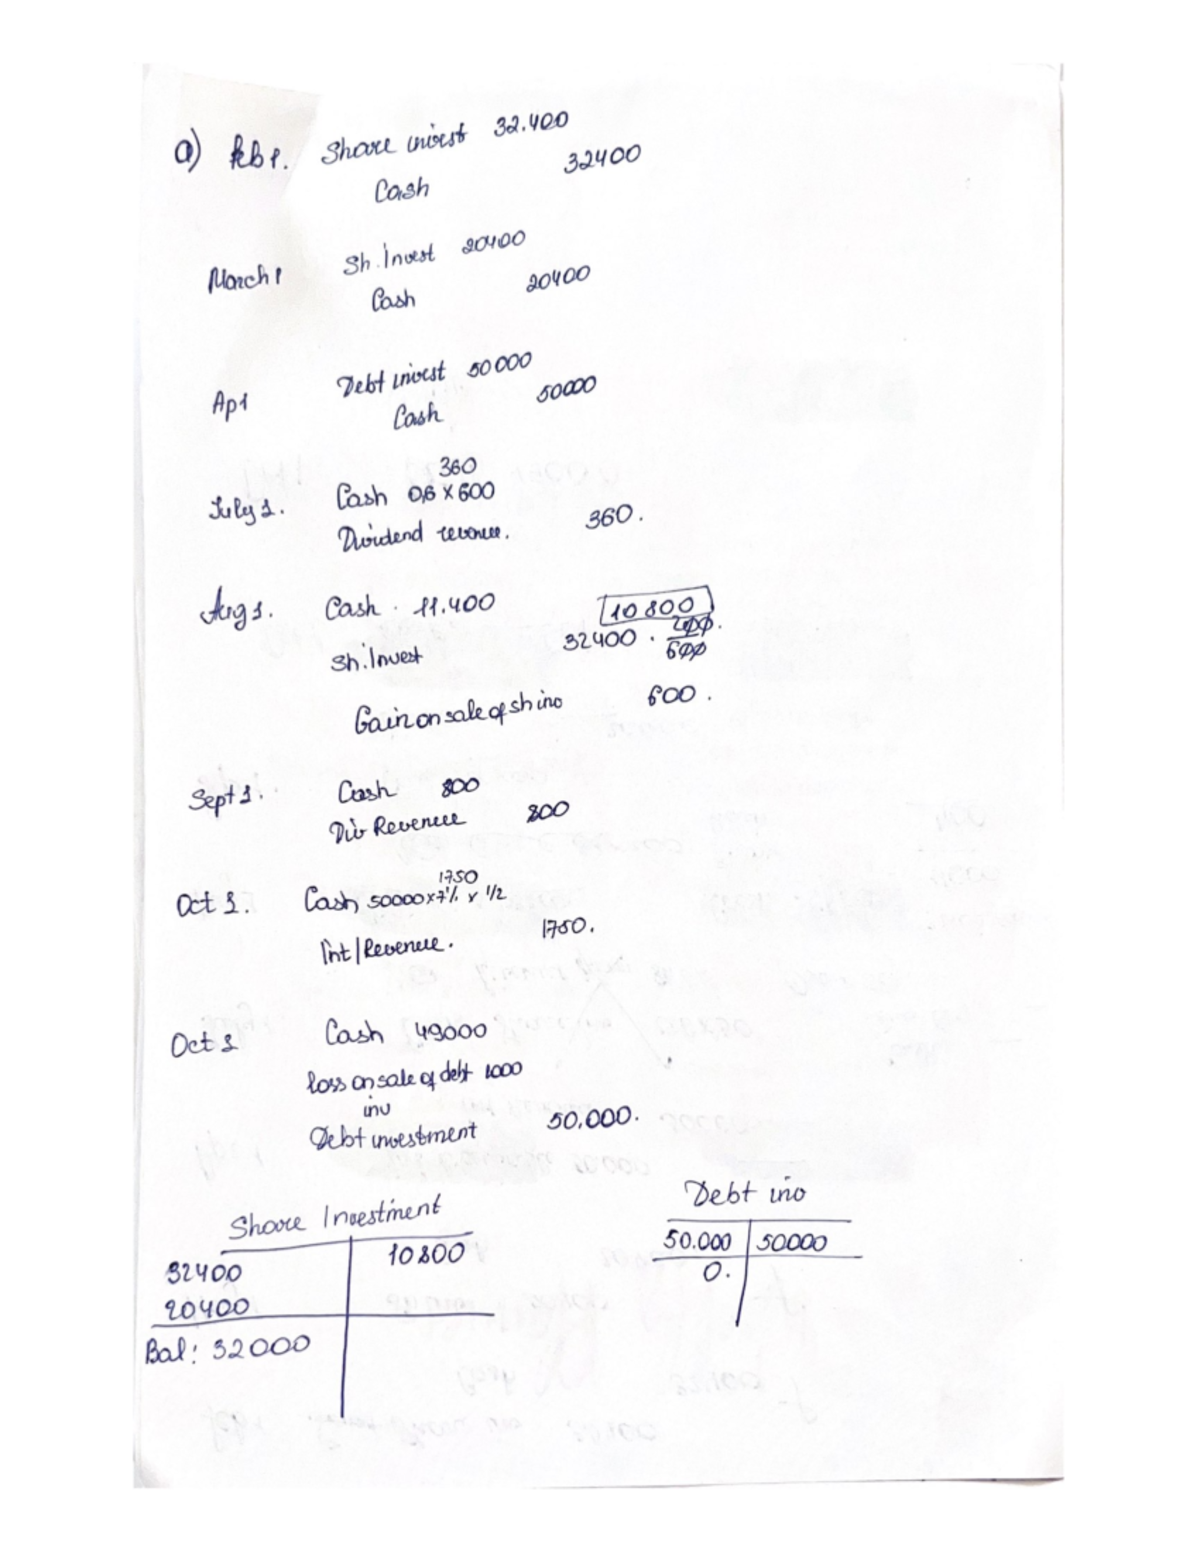 a) Feb 1. Share invest 32.400
Cash 32400
March 1 Sh. Invest 20400
Cash 20400
Ap 1 Debt invest 50000
Cash 50000
360
July 1. Cash 0,6 x 600
Dividend revenue. 360.
Aug 1. Cash . 11.400
10 800
Sh. Invest 32400 . 200/600.
Gain on sale of sh inv 600.
Sept 1. Cash 800
Div Revenue 800
1750
Oct 1. Cash 50000 x 7% x 1/2
Int/Revenue. 1750.
Oct 1 Cash 49000
loss on sale of debt 1000
inv
Debt investment 50.000.
Share Investment
32400 10800
20400
Bal: 32000
Debt inv
50.000 50000
0.